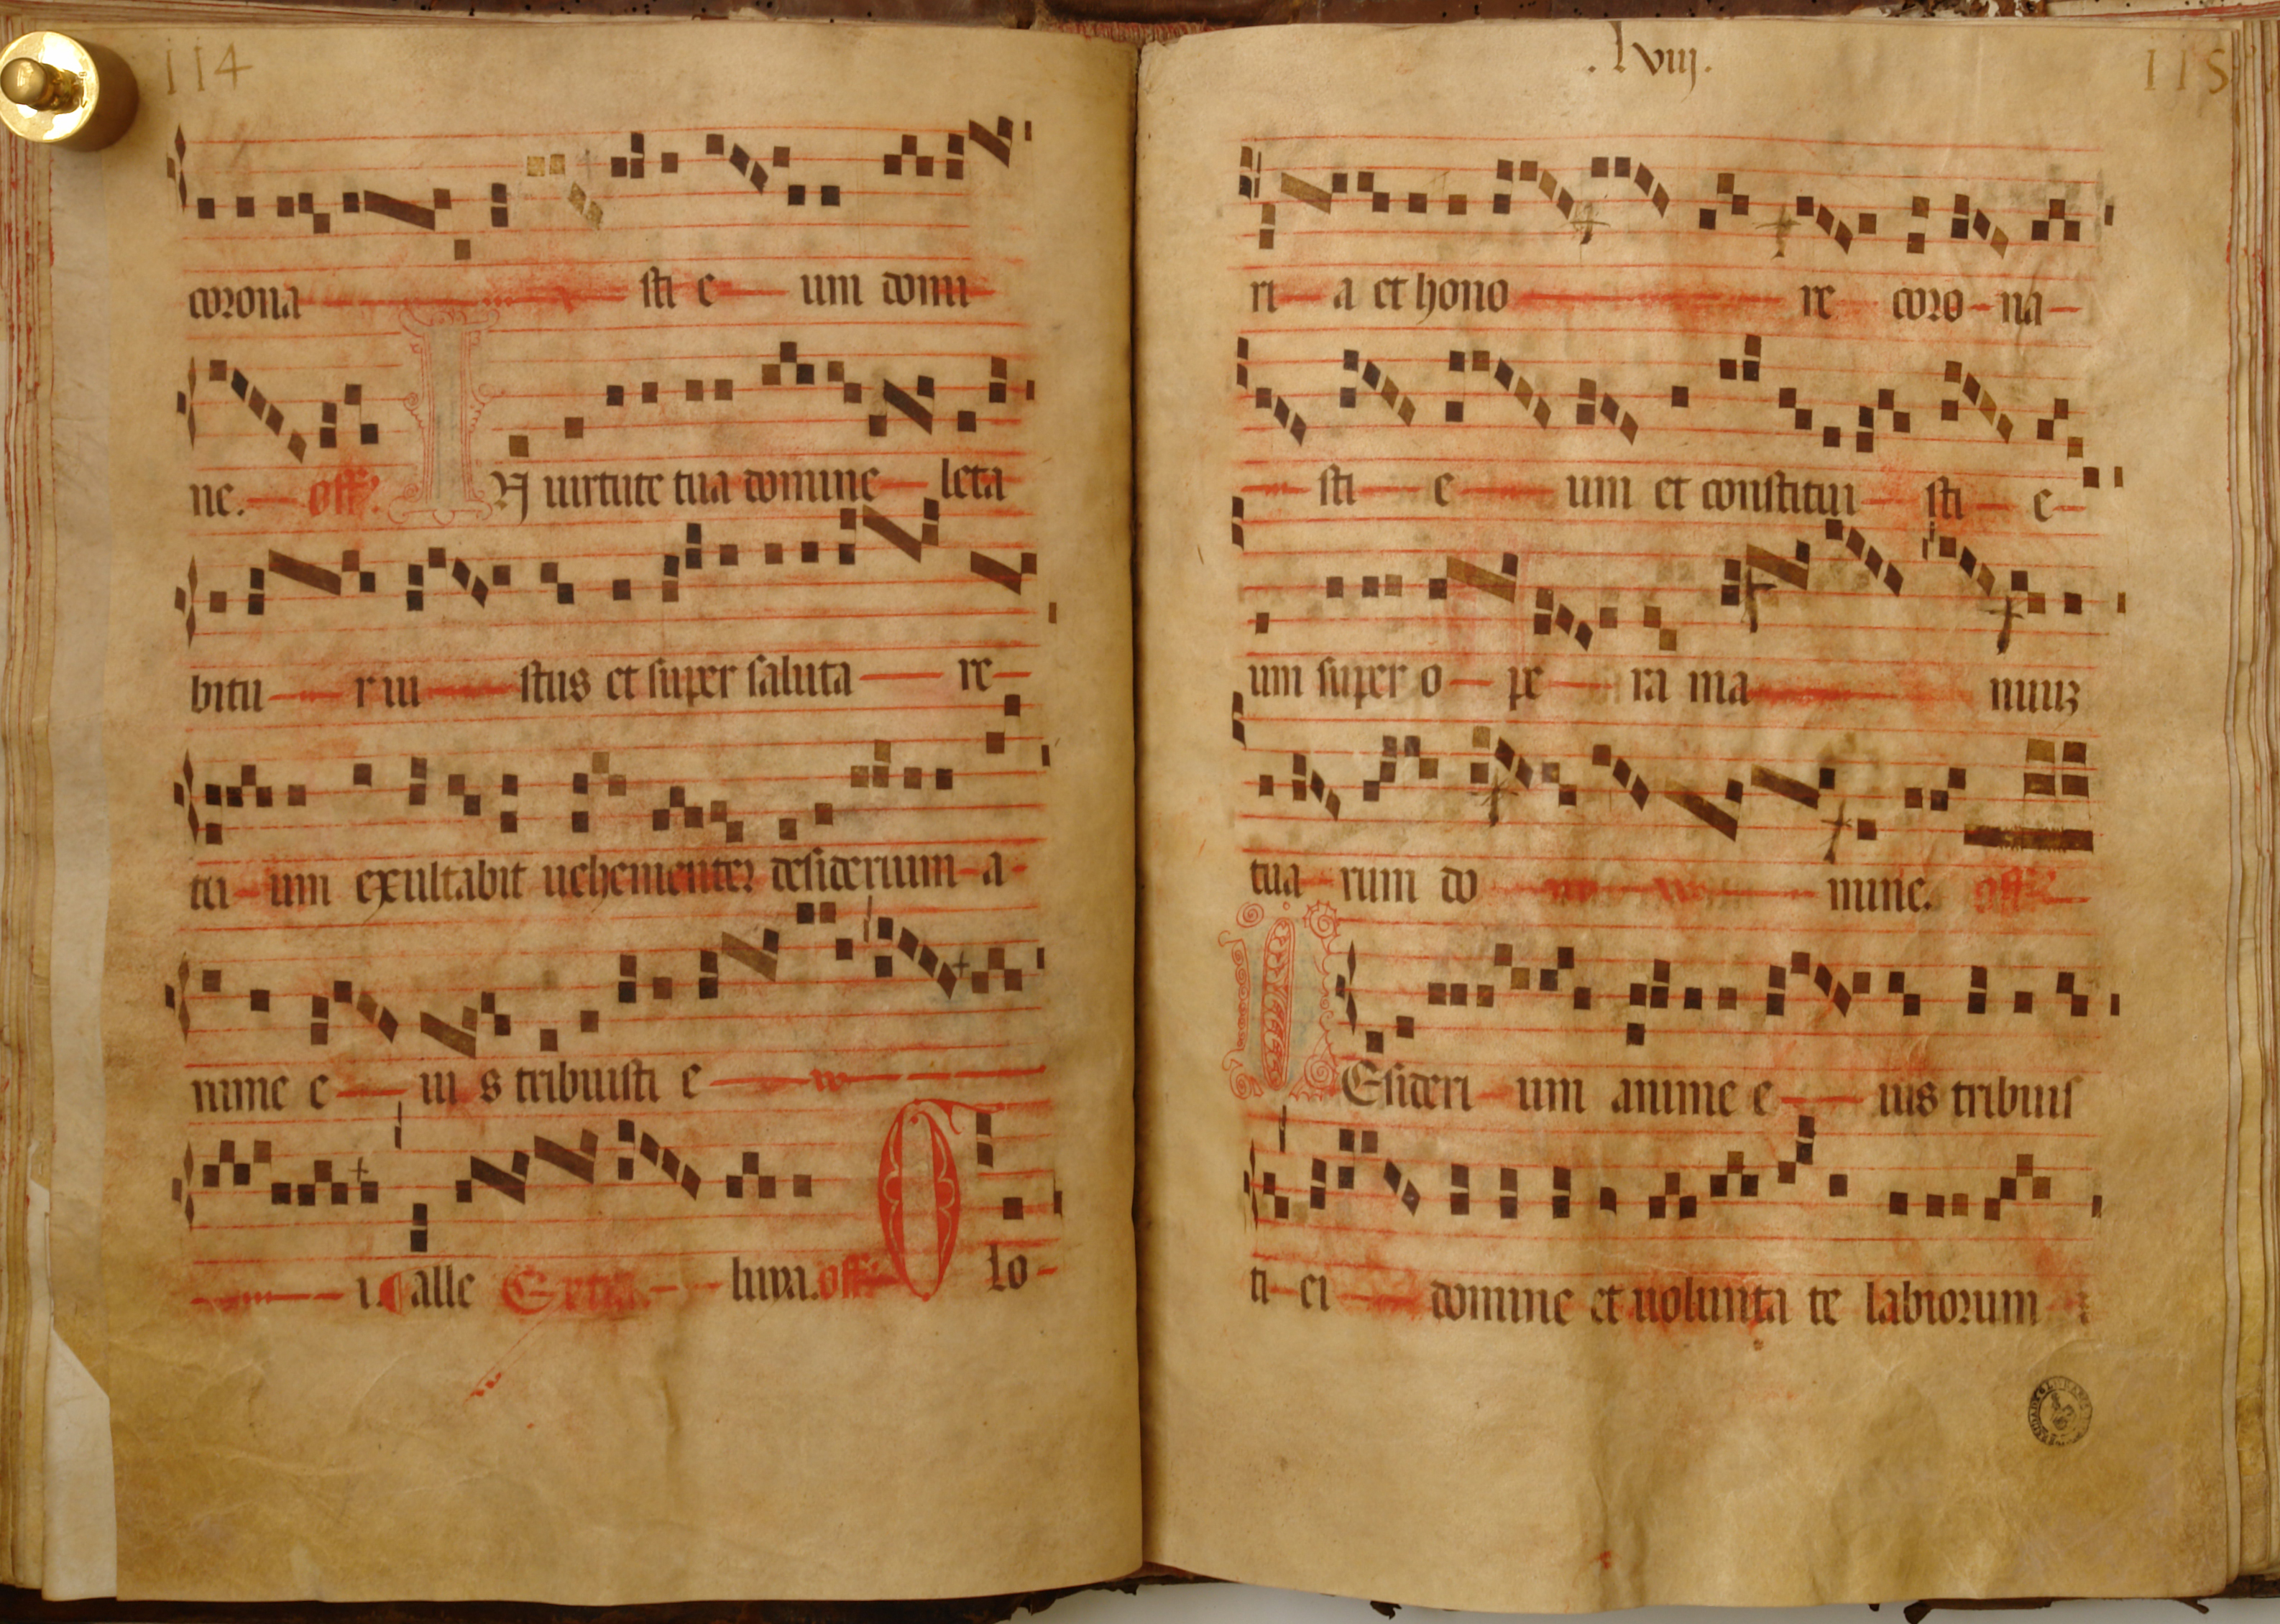 114
corona sti e um domi
ne. off.
IN uirtute tua domine leta
bitu r iu stus et super saluta re
tu um exultabit uehementer desiderium a
nime e iu s tribuisti e
i. alle luya. off. Glo
.lviij. 115
ri a et hono re coro na
sti e um et constitui sti e
um super o pe ra ma nuuz
tua rum do mine. off.
DEsideri um anime e ius tribuis
ti ei domine et uolunta te labiorum